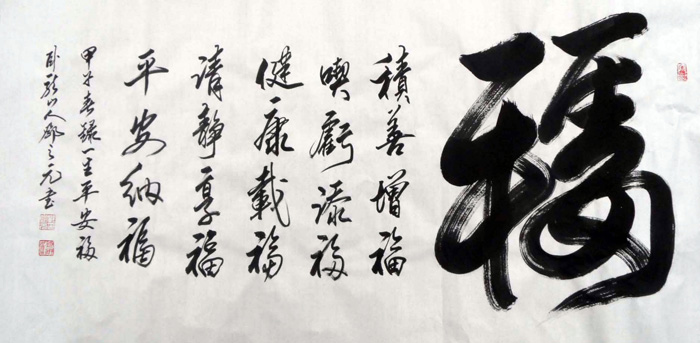 福
積善增福
喫虧添福
健康載福
清靜享福
平安納福
甲午春録一生平安福
卧龍山人邵之元書